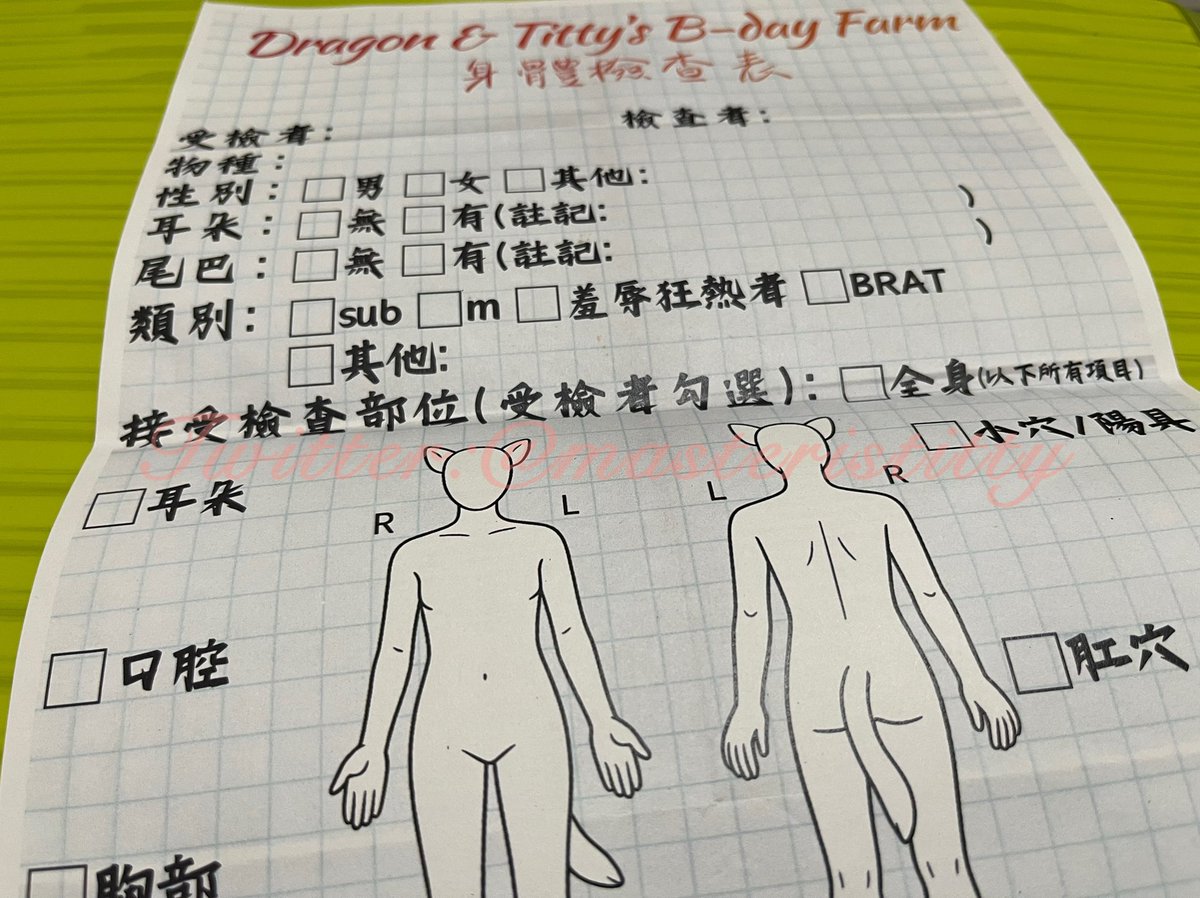 Dragon & Titty's B-day Farm
身體檢查表
受檢者: 檢查者:
物種:
性別: □男 □女 □其他:
耳朵: □無 □有(註記: )
尾巴: □無 □有(註記: )
類別: □sub □m □羞辱狂熱者 □BRAT
□其他:
接受檢查部位(受檢者勾選): □全身(以下所有項目)
Twitter:@masteristitty
□小穴/陽具
□耳朵
R L L R
□口腔 □肛穴
□胸部